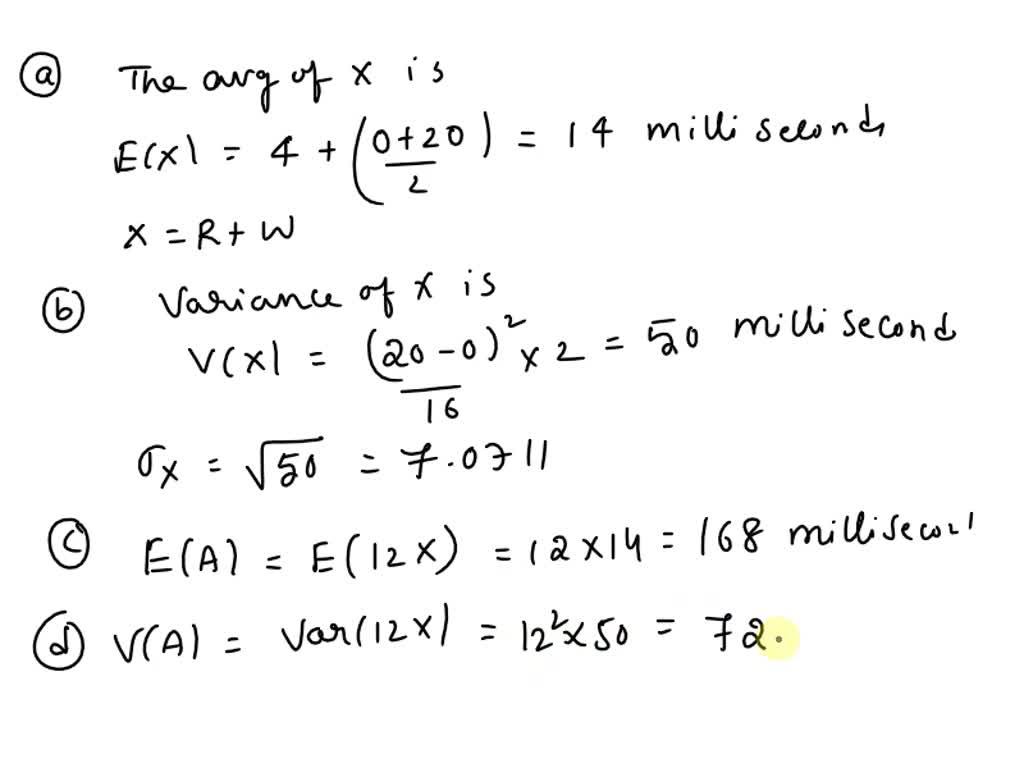 (a) The avg of X is
E(X) = 4 + (0+20/2) = 14 milliseconds
X = R + W
(b) Variance of X is
V(X) = (20-0)²/16 × 2 = 50 millisecond
σx = √50 = 7.0711
(c) E(A) = E(12X) = 12×14 = 168 millisecon
(d) V(A) = Var(12X) = 12²×50 = 72